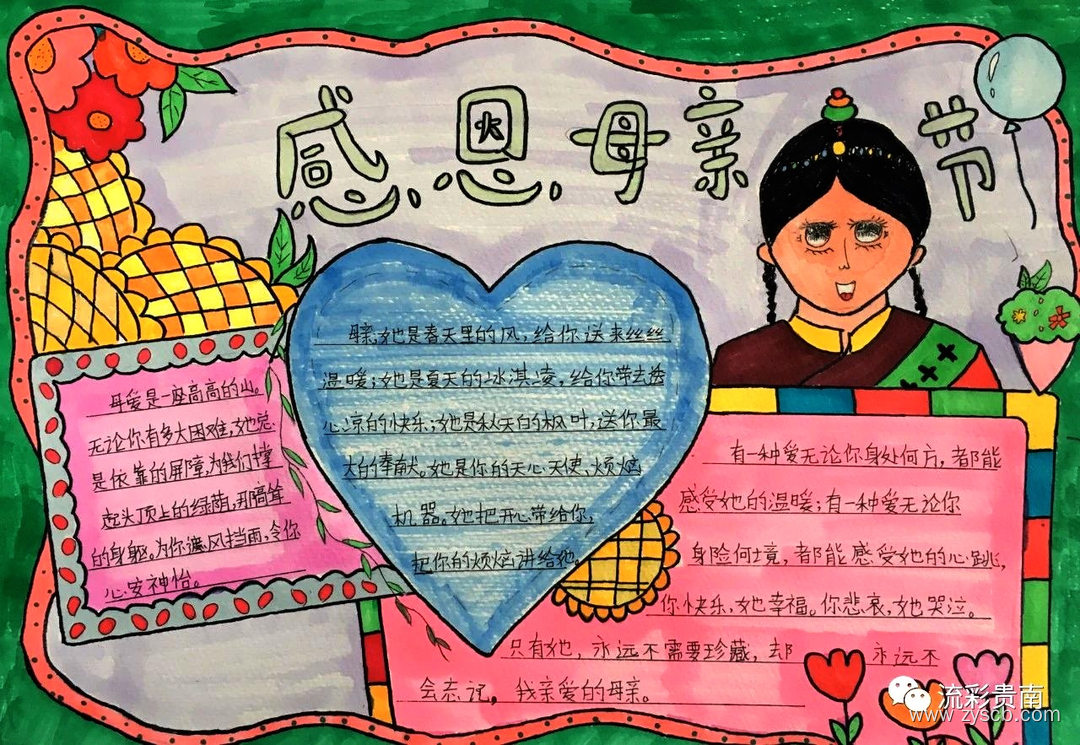 感恩母亲节
母爱是一座高高的山。
无论你有多大困难,她总
是依靠的屏障,为我们撑
起头顶上的绿荫,那高耸
的身躯。为你遮风挡雨,令你
心安神怡。
她是春天里的风,给你送来丝丝
温暖;她是夏天的冰淇凌,给你带去透
心凉的快乐;她是秋天的枫叶,送你最
大的奉献。她是你的天心天使、烦恼
机器。她把开心带给你,
把你的烦恼讲给她。
有一种爱无论你身处何方,都能
感受她的温暖;有一种爱无论你
身险何境,都能感受她的心跳,
你快乐,她幸福。你悲哀,她哭泣。
只有她,永远不需要珍藏,却 永远不
会忘记,我亲爱的母亲。
流彩贵南
www.zyscb.com